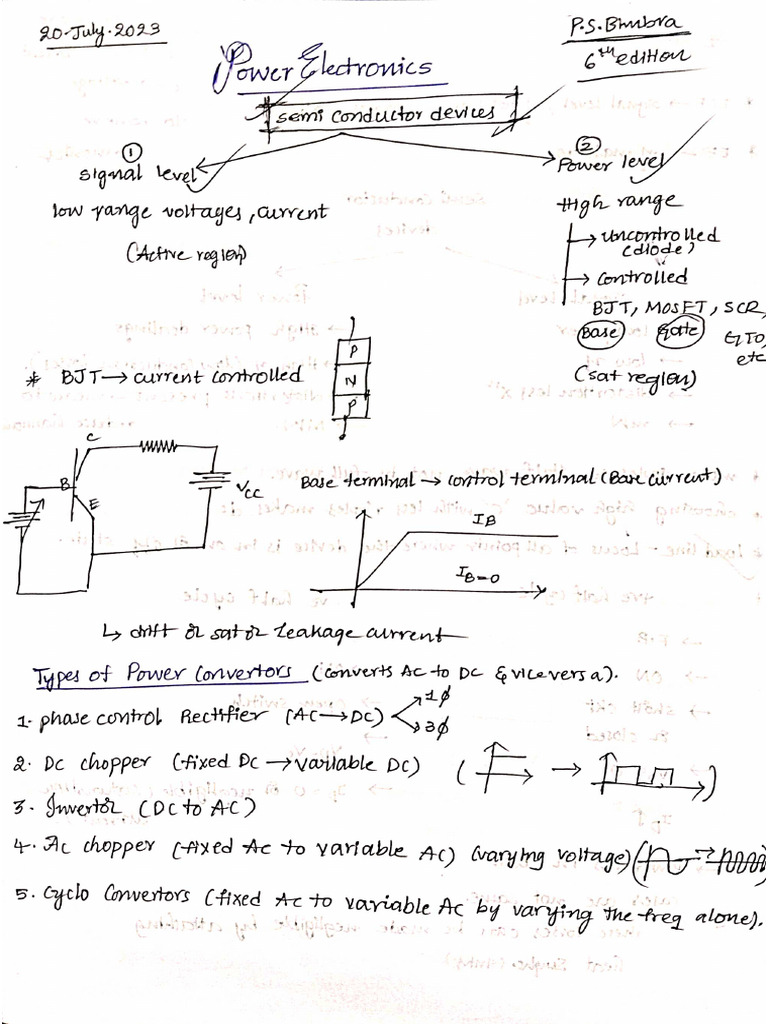 20-July-2023
P.S.Bhubra
6th edition
Power Electronics
semi conductor devices
① signal level
② Power level
low range voltages, current
(Active region)
High range
→ uncontrolled
(diode)
→ controlled
BJT, MOSFT, SCR,
Base Gate GTO,
etc
(sat region)
* BJT → current controlled
P
N
P
C
B
E
VCC
Base terminal → control terminal (Base current)
IB
IB=0
↳ drift or sat or leakage current
Types of Power Convertors (converts AC to DC & viceversa).
1. phase control Rectifier (AC → DC) 1ϕ
3ϕ
2. DC chopper (fixed DC → variable DC) ( → )
3. Invertor (DC to AC)
4. Ac chopper (fixed Ac to variable AC) (varying voltage) ( →
5. Cyclo Convertors (fixed Ac to variable Ac by varying the freq alone).